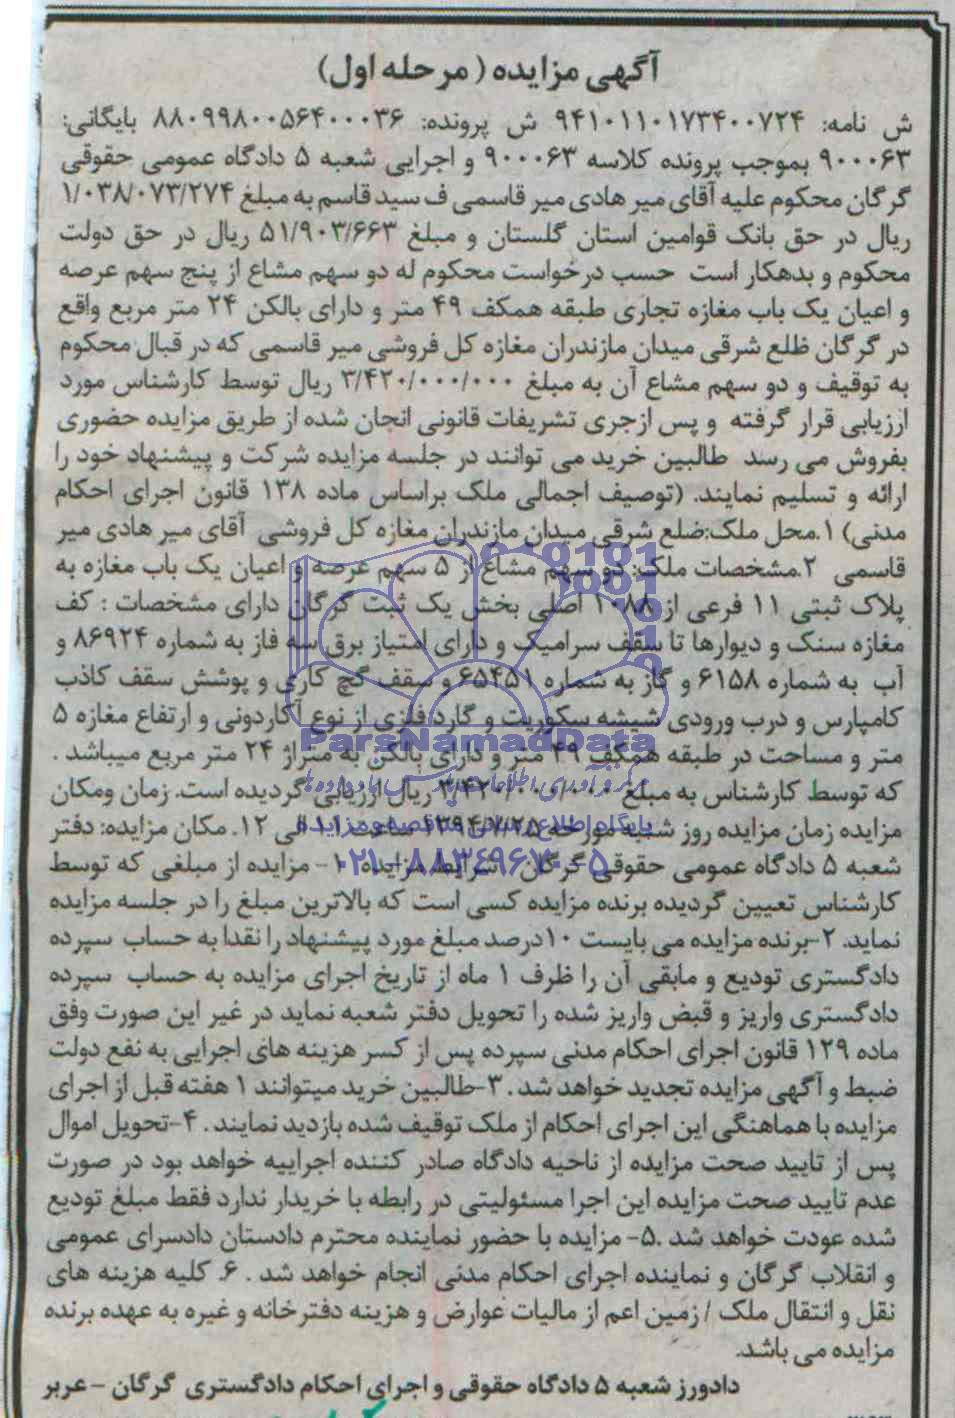 آگهی مزایده (مرحله اول)
ش نامه: ۹۴۱۰۱۱۰۱۷۳۴۰۰۷۲۴ ش پرونده: ۸۸۰۹۹۸۰۰۵۶۴۰۰۰۳۶ بایگانی:
۹۰۰۰۶۳ بموجب پرونده کلاسه ۹۰۰۰۶۳ و اجرایی شعبه ۵ دادگاه عمومی حقوقی
گرگان محکوم علیه آقای میر هادی میر قاسمی ف سید قاسم به مبلغ ۱/۰۳۸/۰۷۳/۲۷۴
ریال در حق بانک قوامین استان گلستان و مبلغ ۵۱/۹۰۳/۶۶۳ ریال در حق دولت
محکوم و بدهکار است حسب درخواست محکوم له دو سهم مشاع از پنج سهم عرصه
و اعیان یک باب مغازه تجاری طبقه همکف ۴۹ متر و دارای بالکن ۲۴ متر مربع واقع
در گرگان ظلع شرقی میدان مازندران مغازه کل فروشی میر قاسمی که در قبال محکوم
به توقیف و دو سهم مشاع آن به مبلغ ۳/۴۲۰/۰۰۰/۰۰۰ ریال توسط کارشناس مورد
ارزیابی قرار گرفته و پس ازجری تشریفات قانونی انجان شده از طریق مزایده حضوری
بفروش می رسد طالبین خرید می توانند در جلسه مزایده شرکت و پیشنهاد خود را
ارائه و تسلیم نمایند. (توصیف اجمالی ملک براساس ماده ۱۳۸ قانون اجرای احکام
مدنی) ۱.محل ملک:ضلع شرقی میدان مازندران مغازه کل فروشی آقای میر هادی میر
قاسمی ۲.مشخصات ملک: دو سهم مشاع از ۵ سهم عرصه و اعیان یک باب مغازه به
پلاک ثبتی ۱۱ فرعی از ۱۰۸۸ اصلی بخش یک ثبت گرگان دارای مشخصات : کف
مغازه سنک و دیوارها تا سقف سرامیک و دارای امتیاز برق سه فاز به شماره ۸۶۹۲۴ و
آب به شماره ۶۱۵۸ و گاز به شماره ۶۵۴۵۱ و سقف گچ کاری و پوشش سقف کاذب
کامپارس و درب ورودی شیشه سکوریت و گارد فلزی از نوع آکاردونی و ارتفاع مغازه ۵
متر و مساحت در طبقه همکف ۴۹ متر و دارای بالکن به متراژ ۲۴ متر مربع میباشد .
که توسط کارشناس به مبلغ ۳/۴۲۰/۰۰۰/۰۰۰ ریال ارزیابی گردیده است. زمان ومکان
مزایده زمان مزایده روز شنبه مورخه ۱۳۹۴/۷/۲۵ ساعت ۱۱ الی ۱۲. مکان مزایده: دفتر
شعبه ۵ دادگاه عمومی حقوقی گرگان شرایط مزایده ۱- مزایده از مبلغی که توسط
کارشناس تعیین گردیده برنده مزایده کسی است که بالاترین مبلغ را در جلسه مزایده
نماید. ۲-برنده مزایده می بایست ۱۰درصد مبلغ مورد پیشنهاد را نقدا به حساب سپرده
دادگستری تودیع و مابقی آن را ظرف ۱ ماه از تاریخ اجرای مزایده به حساب سپرده
دادگستری واریز و قبض واریز شده را تحویل دفتر شعبه نماید در غیر این صورت وفق
ماده ۱۲۹ قانون اجرای احکام مدنی سپرده پس از کسر هزینه های اجرایی به نفع دولت
ضبط و آگهی مزایده تجدید خواهد شد . ۳-طالبین خرید میتوانند ۱ هفته قبل از اجرای
مزایده با هماهنگی این اجرای احکام از ملک توقیف شده بازدید نمایند . ۴-تحویل اموال
پس از تایید صحت مزایده از ناحیه دادگاه صادر کننده اجراییه خواهد بود در صورت
عدم تایید صحت مزایده این اجرا مسئولیتی در رابطه با خریدار ندارد فقط مبلغ تودیع
شده عودت خواهد شد .۵- مزایده با حضور نماینده محترم دادستان دادسرای عمومی
و انقلاب گرگان و نماینده اجرای احکام مدنی انجام خواهد شد . ۶. کلیه هزینه های
نقل و انتقال ملک / زمین اعم از مالیات عوارض و هزینه دفترخانه و غیره به عهده برنده
مزایده می باشد.
دادورز شعبه ۵ دادگاه حقوقی و اجرای احکام دادگستری گرگان - عربر
ParsNamadData
پایگاه اطلاع رسانی مناقصه و مزایده
۰۲۱-۸۸۳۴۹۶۷۰-۵